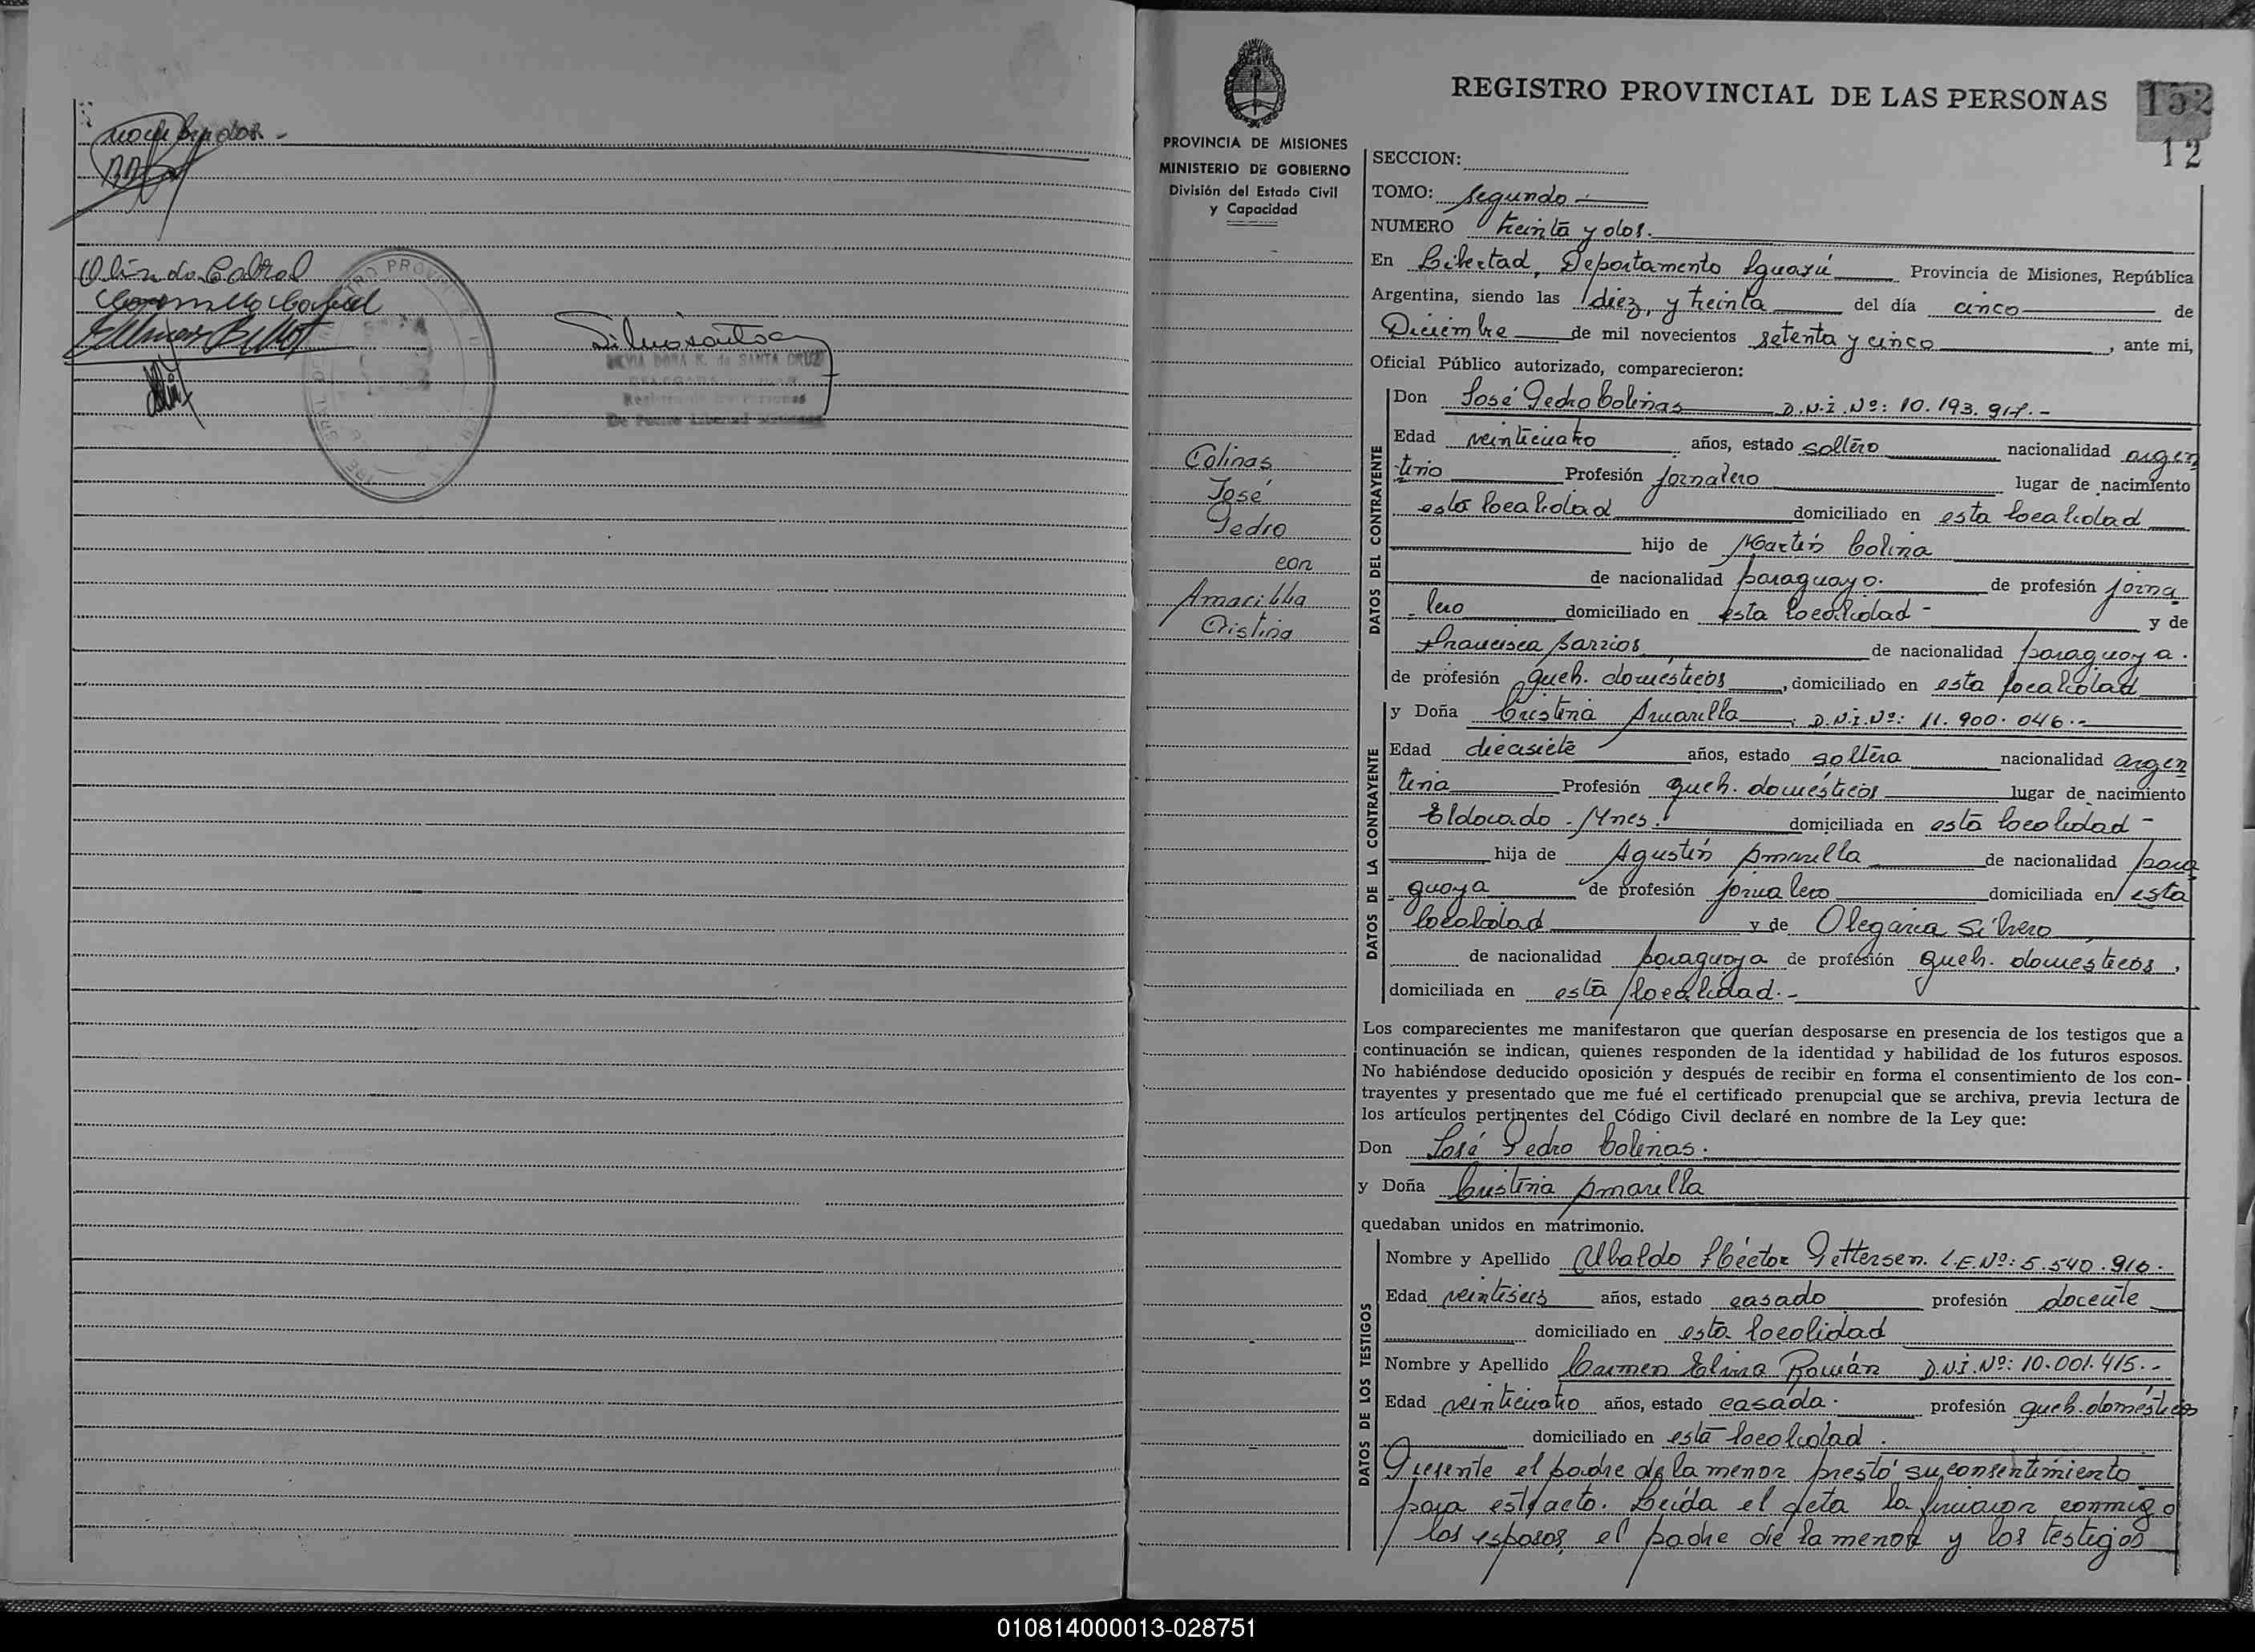 nombrados.-
Olindo Cabral
SILVIA DORA K. de SANTA CRUZ
Registro de las Personas
De Puerto Libertad Misiones
REGISTRO PROVINCIAL DE LAS PERSONAS
152
12
PROVINCIA DE MISIONES
MINISTERIO DE GOBIERNO
División del Estado Civil
y Capacidad
Colinas
José
Pedro
con
Amarilla
Cristina
SECCION:
TOMO: segundo.-
NUMERO treinta y dos.
En Libertad, Departamento Iguazú Provincia de Misiones, República
Argentina, siendo las diez, y treinta del día cinco de
Diciembre de mil novecientos setenta y cinco, ante mi,
Oficial Público autorizado, comparecieron:
DATOS DEL CONTRAYENTE
Don José Pedro Colinas D.N.I. Nº: 10.193.917.-
Edad veinticuatro años, estado soltero nacionalidad argen
tino Profesión jornalero lugar de nacimiento
esta localidad domiciliado en esta localidad
hijo de Martín Colina
de nacionalidad paraguayo. de profesión jorna
lero domiciliado en esta localidad - y de
Francisca Barrios de nacionalidad paraguaya.
de profesión queh. domésticos, domiciliado en esta localidad
DATOS DE LA CONTRAYENTE
y Doña Cristina Amarilla. D.N.I. Nº: 11.900.046.-
Edad diecisiete años, estado soltera nacionalidad argen
tina Profesión queh. domésticos lugar de nacimiento
Eldorado - Mnes. domiciliada en esta localidad -
hija de Agustín Amarilla de nacionalidad para
guaya de profesión jornalero domiciliada en esta
localidad y de Olegaria Silvero
de nacionalidad paraguaya de profesión queh. domésticos,
domiciliada en esta localidad.-
Los comparecientes me manifestaron que querían desposarse en presencia de los testigos que a
continuación se indican, quienes responden de la identidad y habilidad de los futuros esposos.
No habiéndose deducido oposición y después de recibir en forma el consentimiento de los con-
trayentes y presentado que me fué el certificado prenupcial que se archiva, previa lectura de
los artículos pertinentes del Código Civil declaré en nombre de la Ley que:
Don José Pedro Colinas.
y Doña Cristina Amarilla
quedaban unidos en matrimonio.
DATOS DE LOS TESTIGOS
Nombre y Apellido Ubaldo Héctor Pettersen. L.E. Nº: 5.540.916.
Edad veintiseis años, estado casado profesión docente
domiciliado en esta localidad
Nombre y Apellido Carmen Elvira Román D.N.I. Nº: 10.001.415.-
Edad veinticuatro años, estado casada. profesión queh. domésticos
domiciliado en esta localidad.
Presente el padre de la menor prestó su consentimiento
para este acto. Leída el acta la firmaron conmigo
los esposos, el padre de la menor y los testigos
010814000013-028751